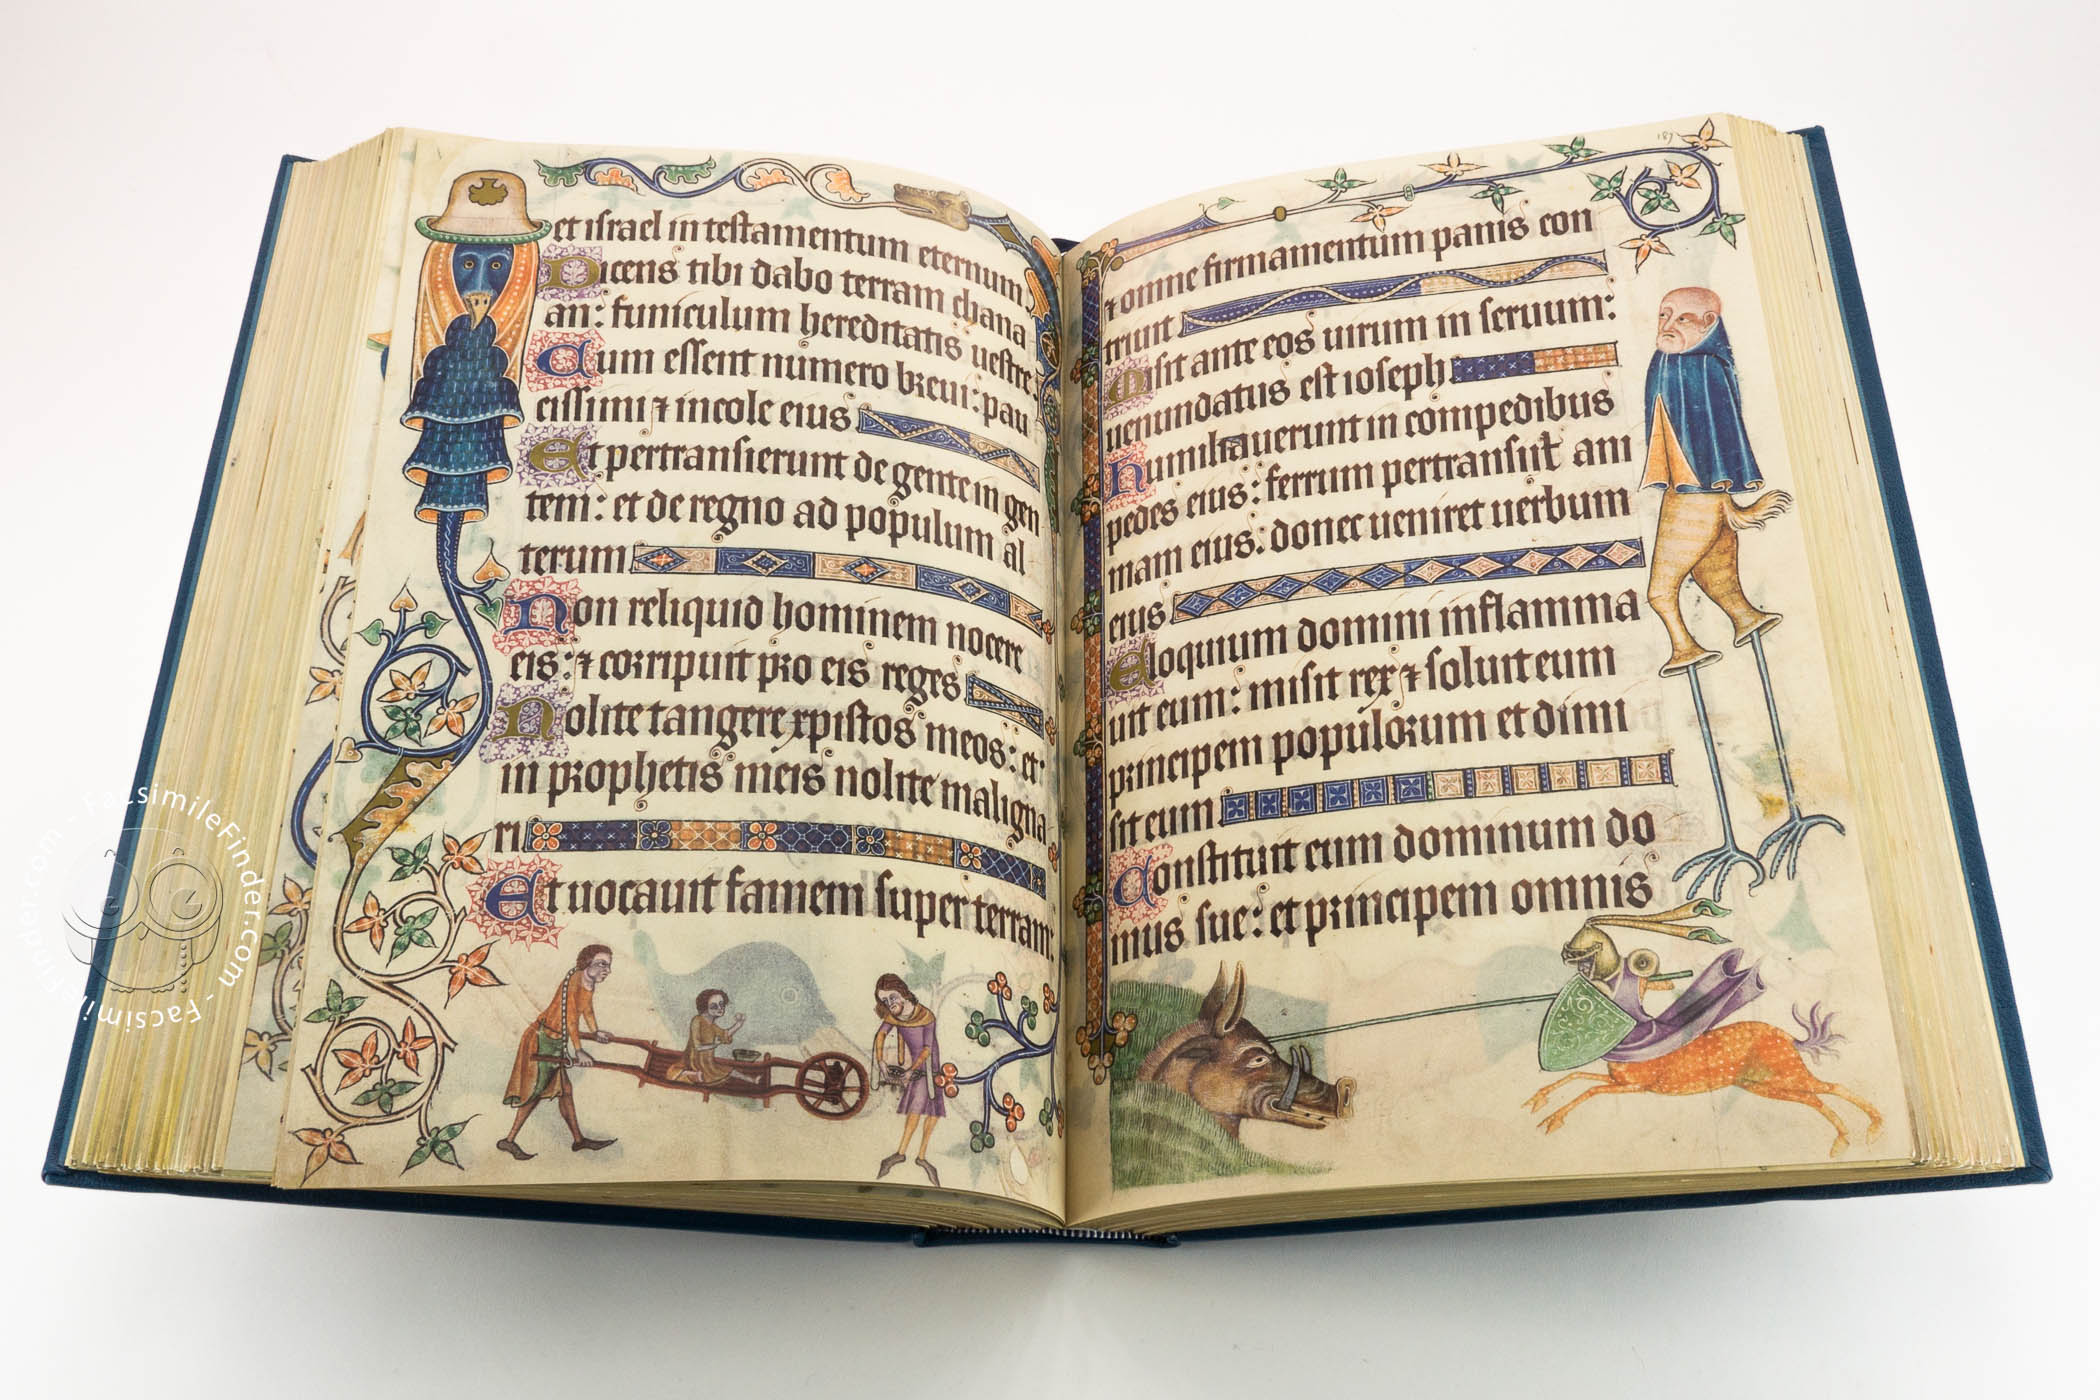 et israel in testamentum eternum.
Dicens tibi dabo terram chana
an: funiculum hereditatis uestre.
Cum essent numero breui: pau
cissimi ⁊ incole eius
Et pertransierunt de gente in gen
tem: et de regno ad populum al
terum
Non reliquid hominem nocere
eis: ⁊ corripuit pro eis reges
Nolite tangere xpistos meos: et
in prophetis meis nolite maligna
ri
Et uocauit famem super terram:
187
et omne firmamentum panis con
triuit
Misit ante eos uirum in seruum:
uenundatus est ioseph
humiliauerunt in compedibus
pedes eius: ferrum pertransiit ani
mam eius: donec ueniret uerbum
eius
Eloquium domini inflamma
uit eum: misit rex ⁊ soluit eum
princeps populorum et dimi
sit eum
Constituit eum dominum do
mus sue: et principem omnis
FacsimileFinder.com - FacsimileFinder.com